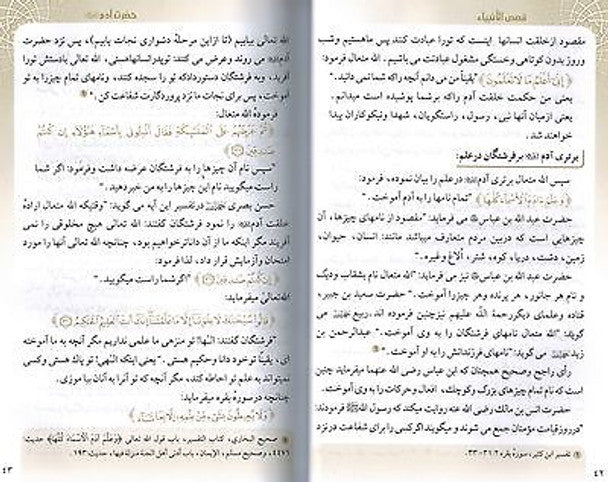 قصص الأنبياء
مقصود ازخلقت انسانها اینست که تورا عبادت کنند پس ماهستیم وشب
وروز بدون کوتاهی وخستگی مشغول عبادتت می باشیم . الله متعال فرمود:
﴿إِنِّي أَعْلَمُ مَا لَا تَعْلَمُونَ﴾ "یقیناً من می دانم آنچه راکه شما نمی دانید."
یعنی من حکمت خلقت آدم راکه برشما پوشیده است میدانم.
یعنی ازمیان آنها نبی، رسول، راستگویان، شهدا ونیکوکاران پیدا
خواهند شد.
برتری آدم برفرشتگان درعلم:
سپس الله متعال برتری آدم درعلم را بیان نموده، فرمود:
﴿وَعَلَّمَ ءَادَمَ الْأَسْمَاءَ كُلَّهَا﴾ "تمام نامها را به آدم آموخت."
حضرت عبد الله بن عباس می فرماید: "مقصود از نامهای چیزها، آن
چیزهایی است که دربین مردم متعارف میباشد مانند: انسان، حیوان،
زمین، دشت، دریا، کوه، شتر، آلاغ وغیره."
حضرت عبد الله بن عباس نیز می فرماید: "الله متعال نام بشقاب ودیگ
و نام هر جانور، هر پرنده وهر چیزرا آموخت." حضرت سعید بن جبیر،
قتاده وعلمای دیگررحمة الله علیهم نیزچنین فرموده اند، ربیع
می گوید: "الله متعال نامهای فرشتگان را به وی آموخت." عبدالرحمن بن
زید می گوید: "نامهای فرزندانش را به او آموخت."
رأی راجح وصحیح همچنان که ابن عباس رضی الله عنهما میفرماید چنین
است که نام تمام چیزهای بزرگ وکوچك، افعال وحرکات را به وی آموخت.
حضرت انس بن مالك رضی الله عنه روایت میکند که رسول الله فرمودند:
"درروزقیامت مؤمنان جمع می شوند و میگویند اگرکسی را برای شفاعت درنزد
تفسیر ابن کثیر، سورهٔ بقره ۲: ۳۱-۳۳.
٤٢
حضرت آدم
الله تعالی بیابیم (تا ازاین مرحلهٔ دشواری نجات یابیم)، پس نزد حضرت
آدم می روند وعرض می کنند: توپدرانسانهاستی، الله تعالی بادستش تورا
آفرید، وبه فرشتگان دستورداده که تو را سجده کنند، ونامهای تمام چیزرا به تو
آموخت، پس برای نجات ما نزد پروردگارت شفاعت کن."
فرمودهٔ الله متعال:
﴿ثُمَّ عَرَضَهُمْ عَلَى الْمَلَٰئِكَةِ فَقَالَ أَنۢبِـُٔونِي بِأَسْمَاءِ هَٰؤُلَاءِ إِن كُنتُمْ
صَٰدِقِينَ﴾
"سپس نام آن چیزها را به فرشتگان عرضه داشت وفرمود: اگر شما
راست میگویید نام این چیزها را به من خبر دهید."
حسن بصری درتفسیر این آیه می گوید: "وقتیکه الله متعال ارادهٔ
خلقت آدم را نمود فرشتگان گفتند: الله تعالی هیچ مخلوقی را نمی
آفریند مگر اینکه ما از آن داناترخواهیم بود، چنانچه الله تعالی آنها را مورد
امتحان وآزمایش قرار داد، لذا فرمود:
﴿إِن كُنتُمْ صَٰدِقِينَ﴾ "اگرشما راست میگویید."
الله تعالی میفرماید:
﴿قَالُوا سُبْحَٰنَكَ لَا عِلْمَ لَنَا إِلَّا مَا عَلَّمْتَنَا إِنَّكَ أَنتَ الْعَلِيمُ الْحَكِيمُ﴾
"فرشتگان گفتند: الهٰا! تو منزهی ما علمی نداریم مگر آنچه به ما آموخته
ای، یقیناً تو خود دانا وحکیم هستی." یعنی اینکه الهٰی! تو پاك هستی وکسی
نمیتواند به علم تو احاطه کند، مگر آنچه که تو آنرا به آنان بیا موزی.
چنانچه درسورهٔ بقره میفرماید:
﴿وَلَا يُحِيطُونَ بِشَيْءٍ مِّنْ عِلْمِهِ إِلَّا بِمَا شَاءَ﴾
صحیح البخاری، کتاب التفسیر، باب قول الله تعالی (وَعَلَّمَ آدَمَ الْأَسْمَاءَ كُلَّهَا) حدیث:
٤٤٧٦، وصحیح مسلم، الإیمان، باب أدنی أهل الجنة منزلة فیها، حدیث: ۱۹۳.
٤٣